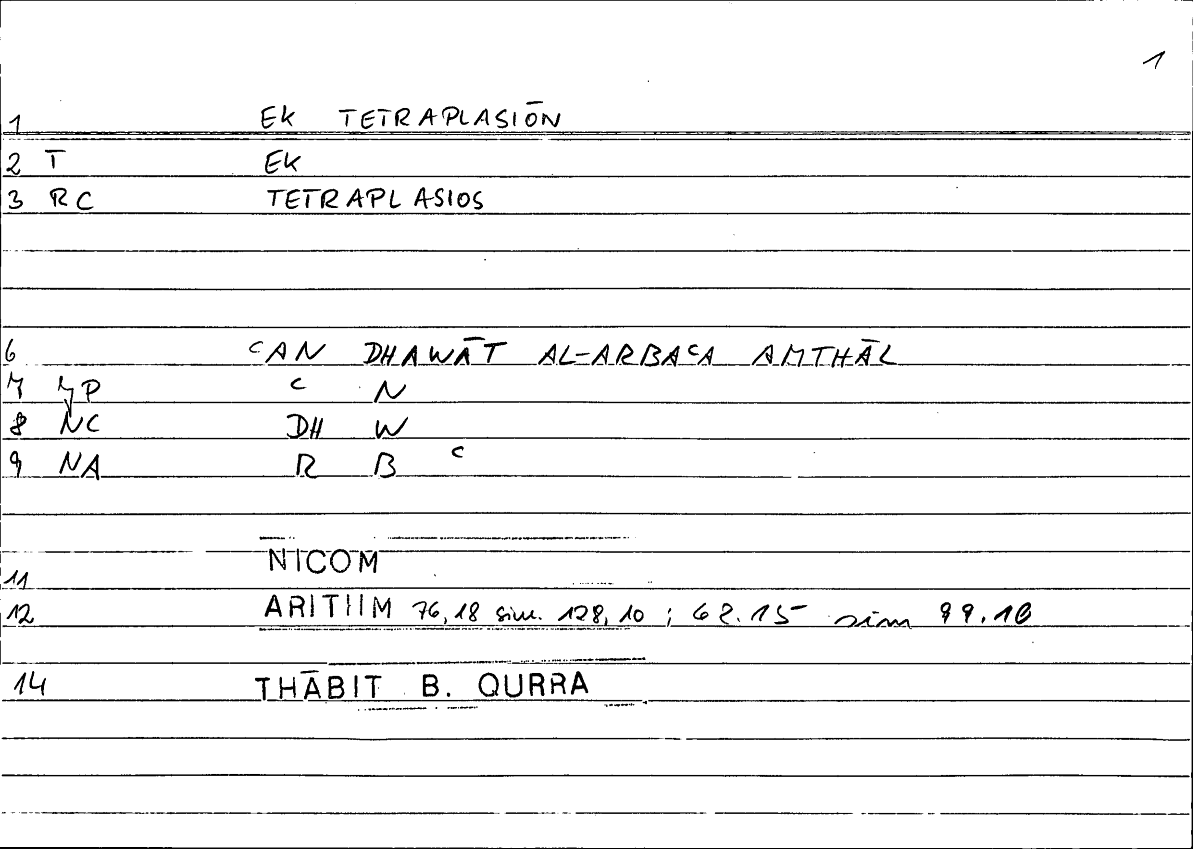 1
1 EK TETRAPLASIŌN
2 T EK
3 RC TETRAPLASIOS
6 ᶜAN DHAWĀT AL-ARBAᶜA AMTHĀL
7 P ᶜ N
8 NC DH W
9 NA R B ᶜ
11 NICOM
12 ARITHM 76,18 sim. 128,10 ; 62.15 sim 99.10
14 THĀBIT B. QURRA